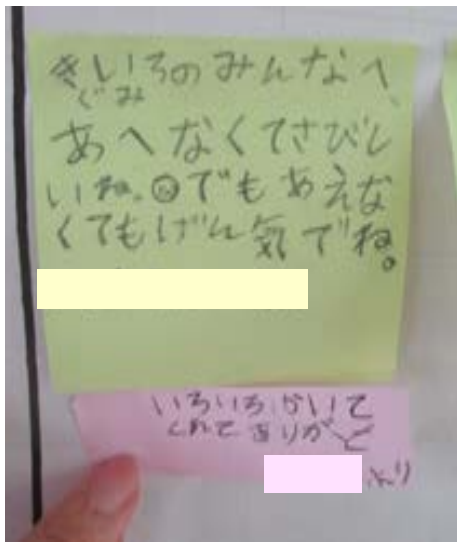 きいろのみんなへ、
ぐみ
あへなくてさびし
いね。でもあえな
くてもげん気でね。
いろいろかいて
くれてありがとう
より